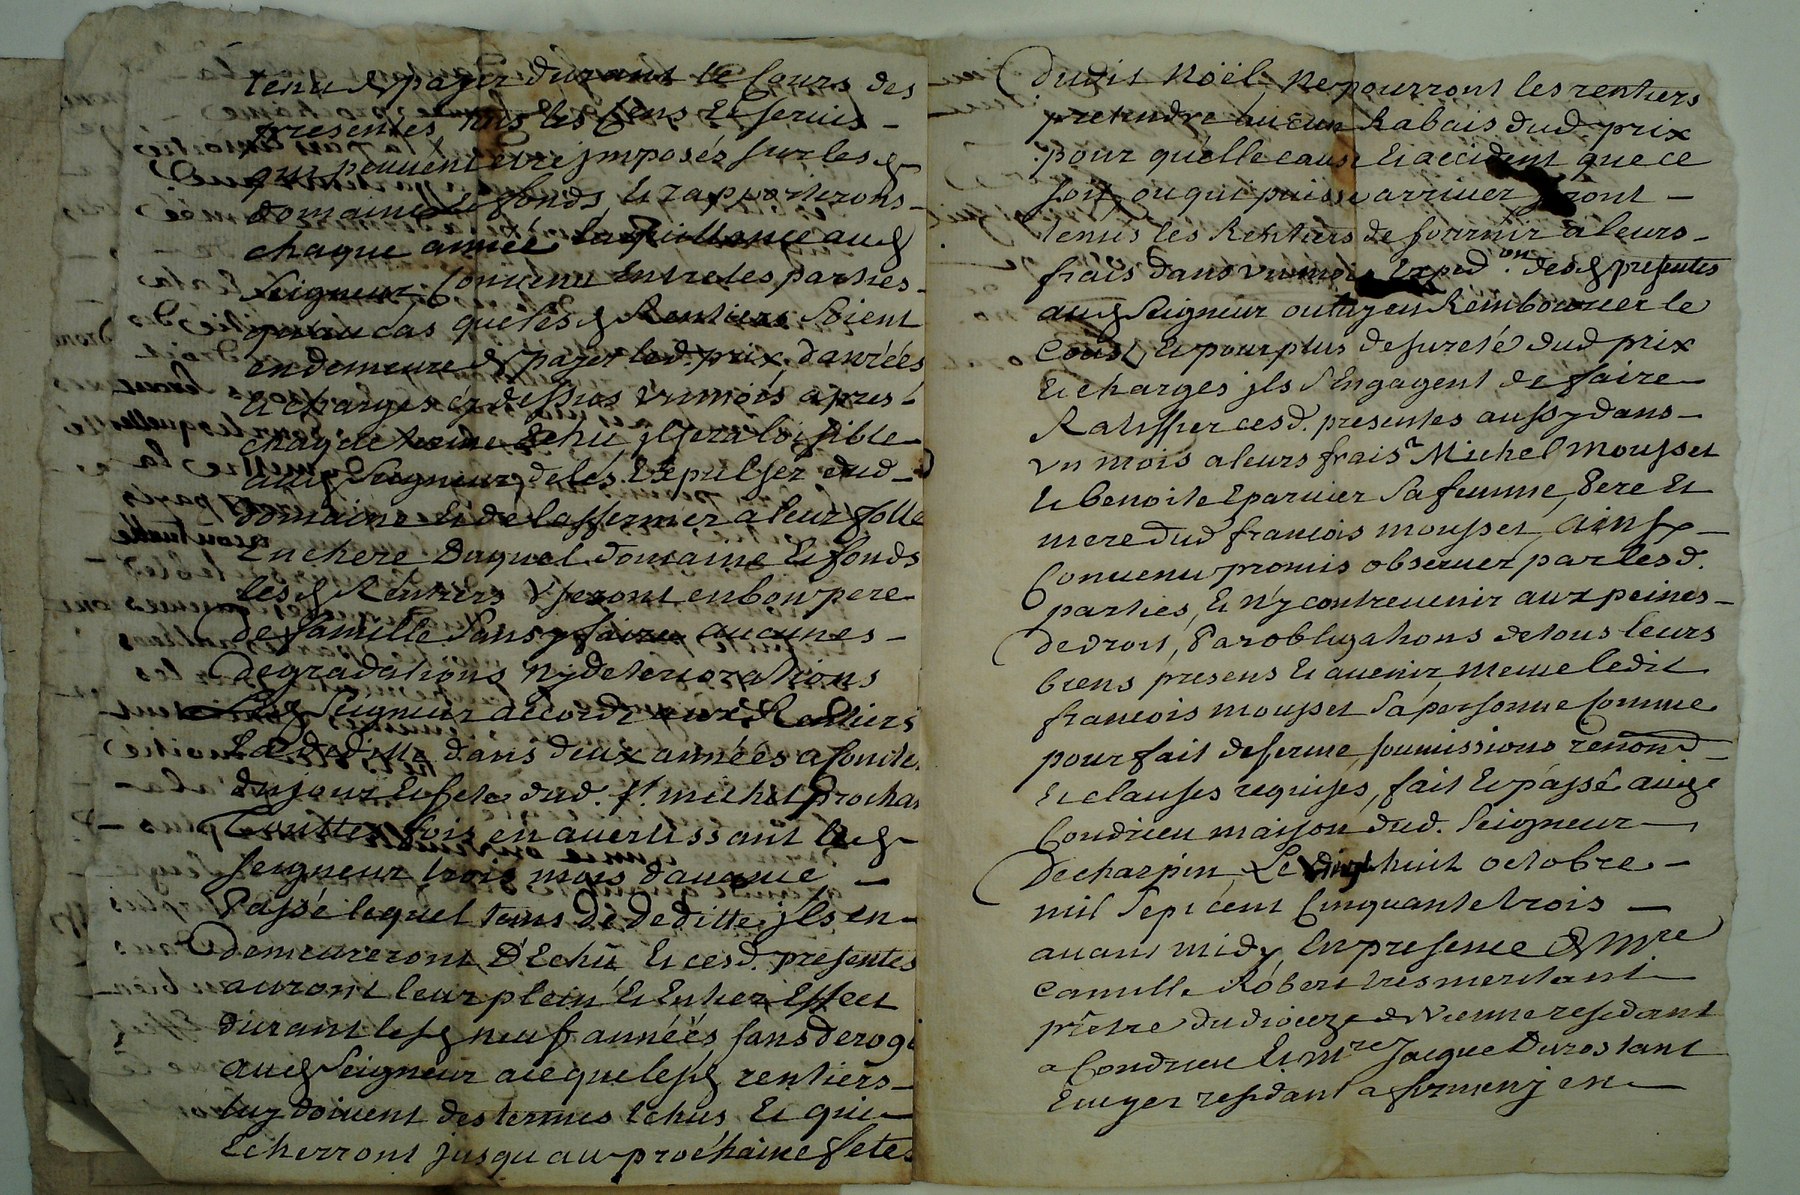 tenu de payer durant le Cours des
presentes, tous les Cens et servis
qui peuvent etre jmposéz sur lesd.
domaine et fonds et rapporterons
chaque année la quittance aud.
Seigneur, Convenu Entre les parties
qu'au cas que lesd. Rentiers soient
en demeure de payer led. prix, danrées
et charges cy dessus un mois apres
chaque terme Echu, jl sera loisible
aud. Seigneur, de les Expulser dud.
domaine et de l'affermer a leur folle
Enchere Duquel Domaine et fonds
lesd. Rentiers useront en bon pere
de famille sans y faire aucunes
degradations ny deteriorations
Led. Seigneur accorde aux Rentiers
La deditte dans deux années a Conter
du jour et fete dud. st. michel prochai
Touttes fois en avertissant led.
seigneur trois mois davance
Passé lequel tems de deditte, jls en
demeureront D'Echû et cesd. presentes
auront leur plein et Entier Effect
durant lesd. neuf années sans deroge
aud. Seigneur a ce que lesd. rentiers
luy doivent des termes Echus et qui
Echerront jusqu'au prochaine fetes
dudit Noël, Ne pourront les rentiers
pretendre aucun Rabais dud. prix
pour quelle cause et accident que ce
soit, ou qui puisse arriver seront
tenus les Rentiers de fournir a leurs
frais dans un mois Exped.on desd. presentes
aud. Seigneur ou luy en Rembourcer le
Coust, et pour plus de sureté dud prix
et charges jls s'Engagent de faire
Ratiffier cesd. presentes aussy dans
un mois a leurs frais a Michel Mousset
et benoite Eparvier sa femme, Pere et
mere dud francois mousset, ainsy
Convenu promis observer par lesd.
parties, et n'y contrevenir aux peines
de droit, Par obligations de tous leurs
biens presens et avenir meme ledit
francois mousset sa personne Comme
pour fait de ferme, soumissions renond.
et clauses requises, fait et passé aud.
Condrieu maison dud. Seigneur
De charpin, Le dix huit octobre
mil sept cent Cinquante trois
avant midy, En presence de Mre
Camille Robert tres meritant
prêtre du dioceze de Vienne residant
a Condrieu et Mre Jacque Durostant
Ecuyer residant a firmeny en